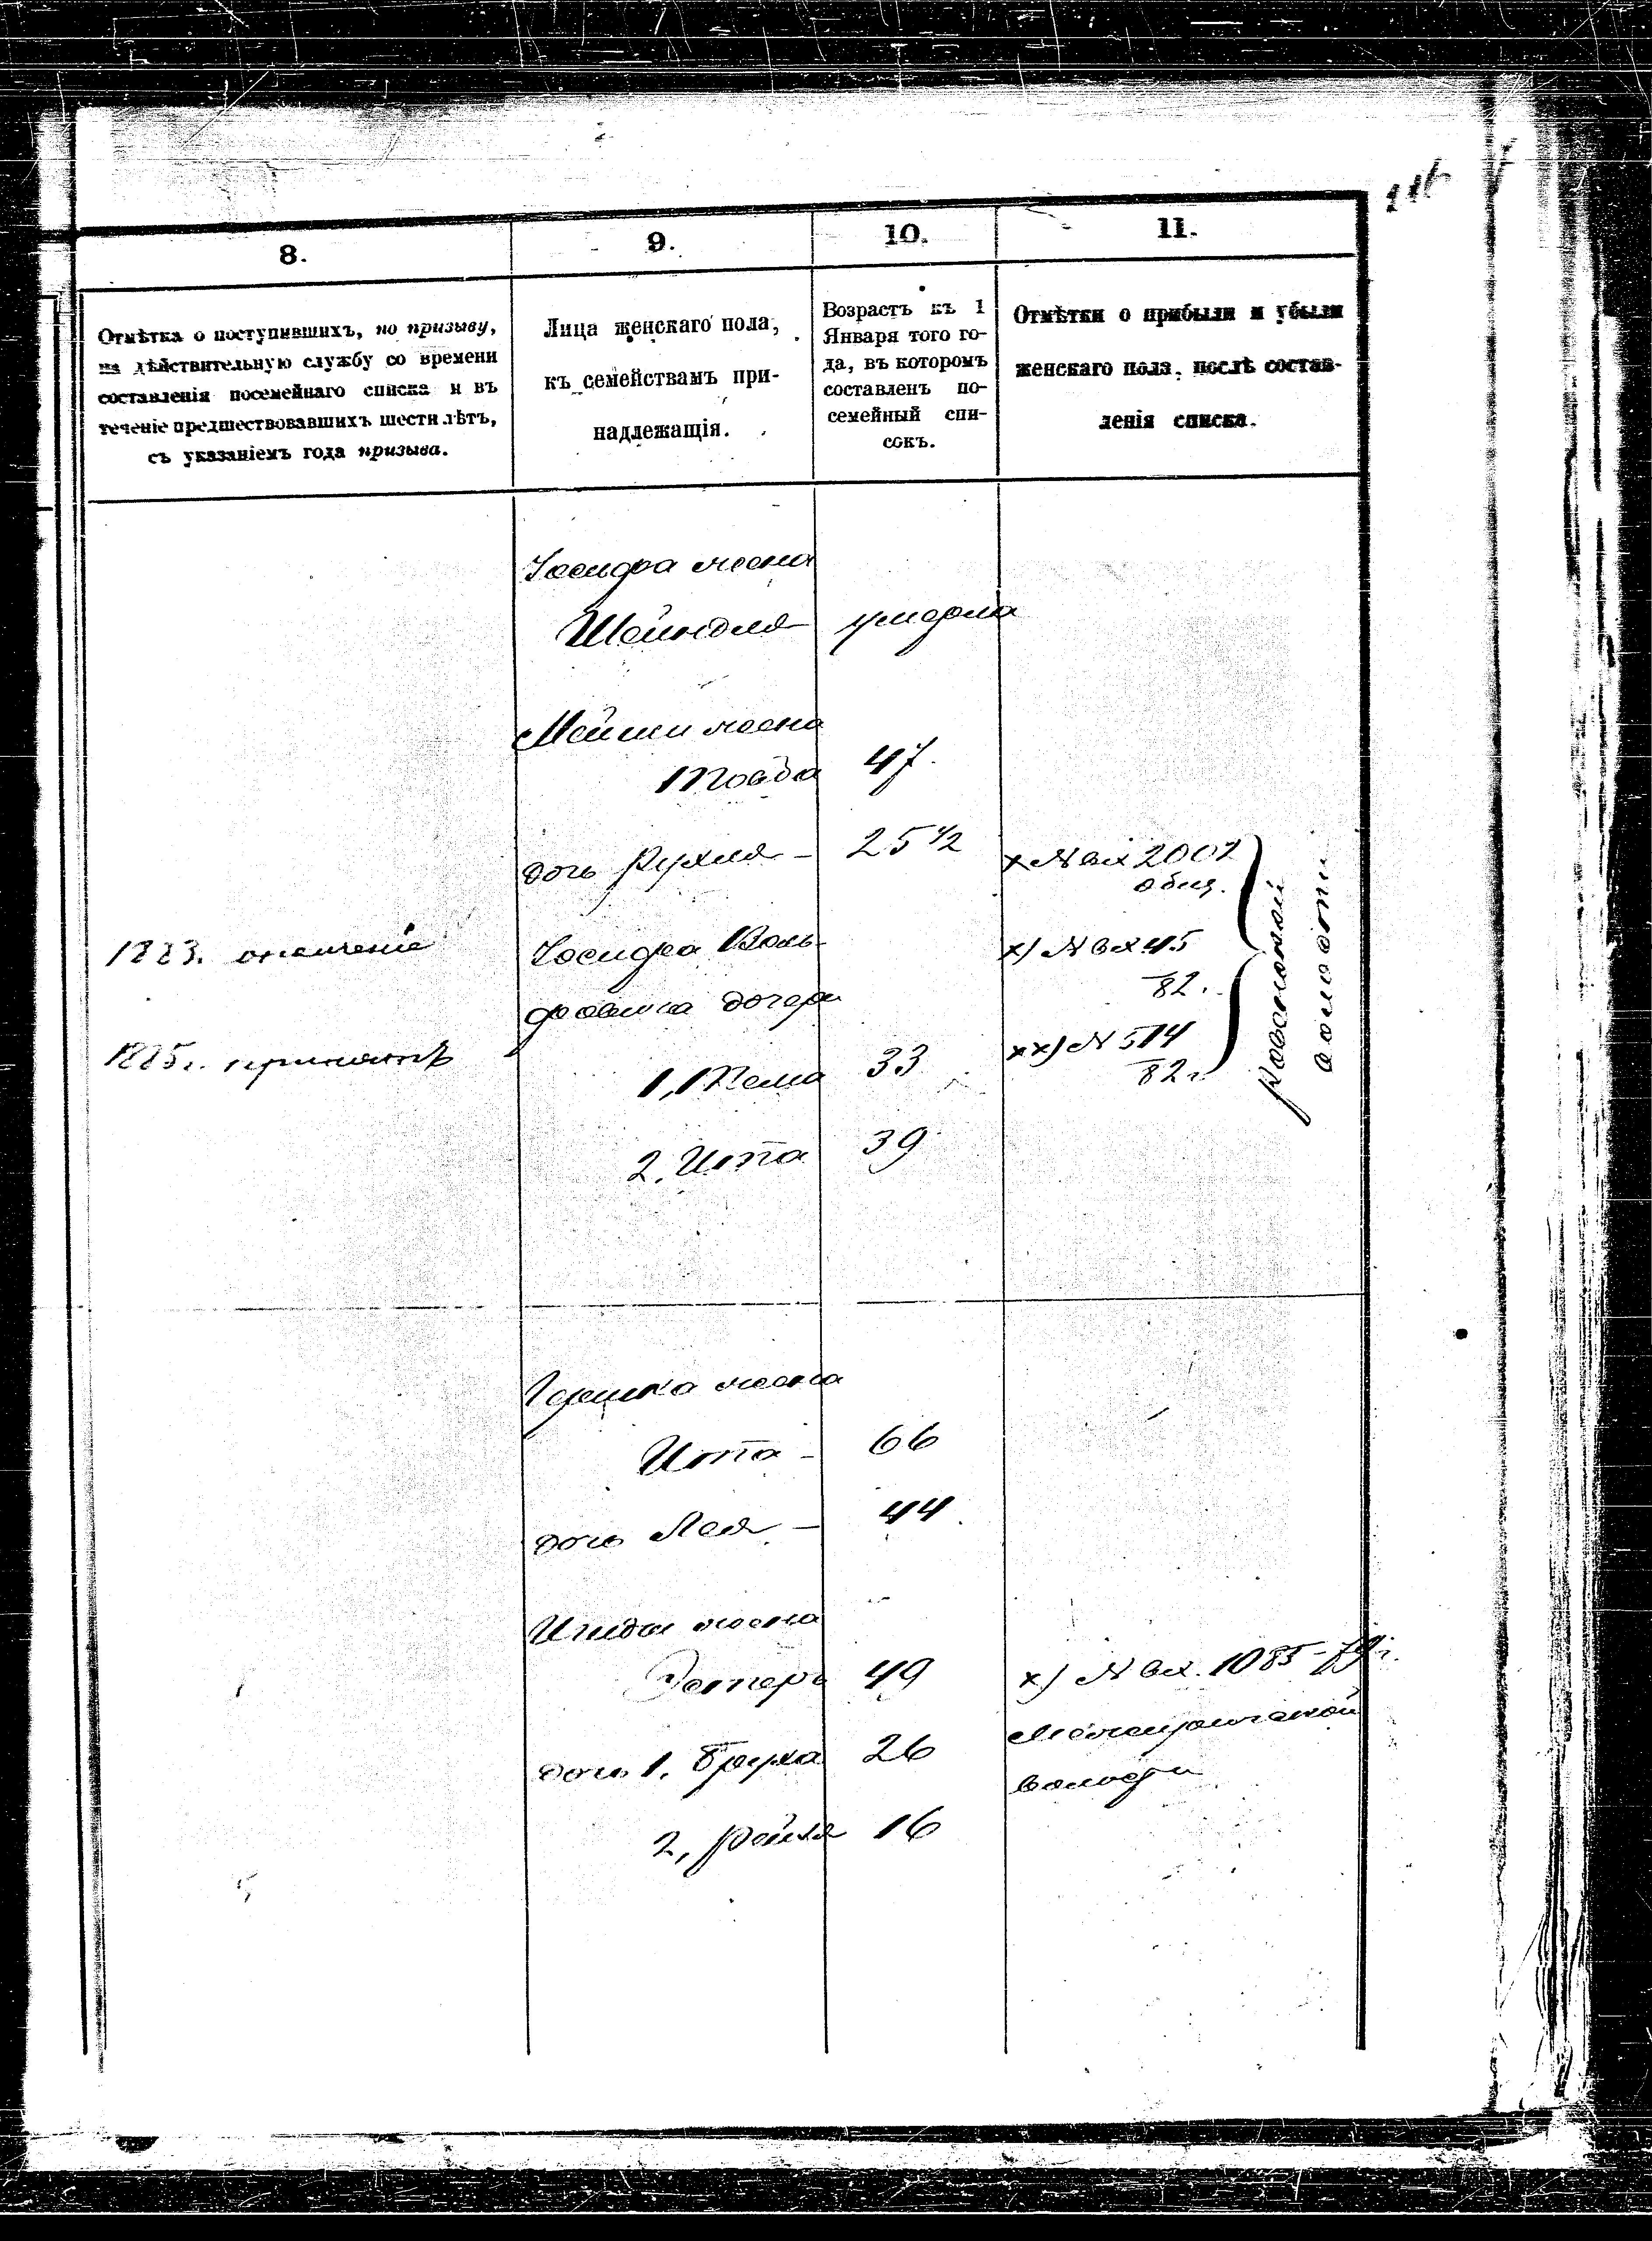 116
8.
9.
10.
11.
Отмѣтка о поступившихъ, по призыву,
на дѣйствительную службу со времени
составленія посемейнаго списка и въ
теченіе предшествовавшихъ шести лѣтъ,
съ указаніемъ года призыва.
Лица женскаго пола,
къ семействамъ при-
надлежащія.
Возрастъ къ 1
Января того го-
да, въ которомъ
составленъ по-
семейный спи-
сокъ.
Отмѣтки о прибыли и убыли
женскаго пола, послѣ состав-
ленія списка.
жена
Шейндля умерла
жена
Товба 47
дочь Рухля – 25 1/2
х № вх 2002
общ.
1883. ополченіе
Воль-
дочери
х) № вх 45
82.
1885 г. принятъ
1, 33
хх) № 514
82 г.
волости
2, Ита 39
Гершка жена
Ита – 66
дочь Лея – 44
жена
Эстеръ 49
х) № вх. 1085 – 79 г.
дочь 1, Бруха 26
волости
2, Рейзя 16